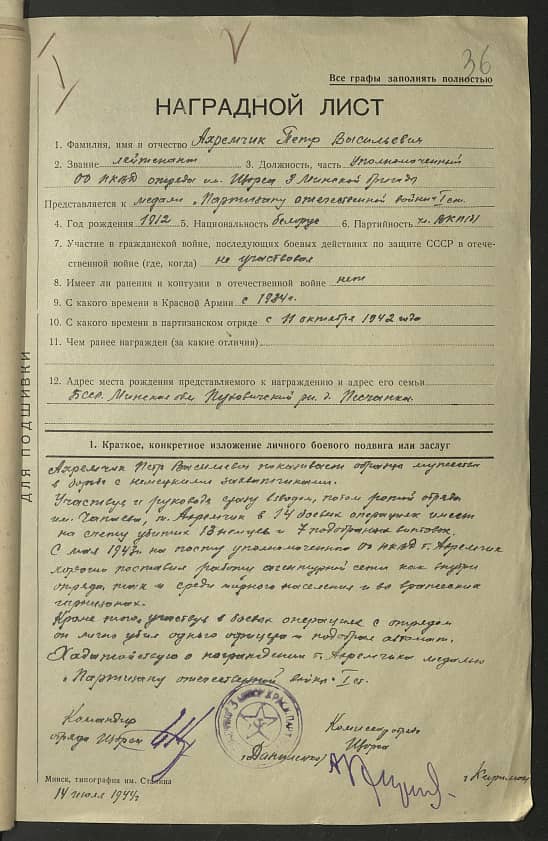 36
Все графы заполнять полностью
НАГРАДНОЙ ЛИСТ
1. Фамилия, имя и отчество Ахремчик Петр Васильевич
2. Звание лейтенант 3. Должность, часть уполномоченный
ОО НКВД отряда им. Щорса 3 Минской бригады
Представляется к медали "Партизану отечественной войны" I ст.
4. Год рождения 1912 5. Национальность белорус 6. Партийность ч. ВКП(б)
7. Участие в гражданской войне, последующих боевых действиях по защите СССР в отече-
ственной войне (где, когда) не участвовал
8. Имеет ли ранения и контузии в отечественной войне нет
9. С какого времени в Красной Армии с 1934 г.
10. С какого времени в партизанском отряде с 11 октября 1942 года
11. Чем ранее награжден (за какие отличия)
12. Адрес места рождения представляемого к награждению и адрес его семьи
БССР. Минская обл. Пуховичский р-н. д. Песчанка.
ДЛЯ ПОДШИВКИ
1. Краткое, конкретное изложение личного боевого подвига или заслуг
Ахремчик Петр Васильевич показывает образцы мужества
в борьбе с немецкими захватчиками.
Участвуя и руководя сразу взводом, потом ротой отряда
им. Чапаева, т. Ахремчик в 14 боевых операциях имеет
на счету убитых 13 немцев и 7 подобранных винтовок.
С мая 1943 г. на посту уполномоченного ОО НКВД т. Ахремчик
хорошо поставил работу агентурной сети как внутри
отряда, так и среди мирного населения и во вражеских
гарнизонах.
Кроме того, участвуя в боевых операциях с отрядом
он лично убил одного офицера и подобрал автомат.
Ходатайствую о награждении т. Ахремчика медалью
"Партизану отечественной войны" I ст.
Командир
отряда Щорса
Комиссар отряда
Щорса
Минск, типография им. Сталина
14 июля 1944 г.